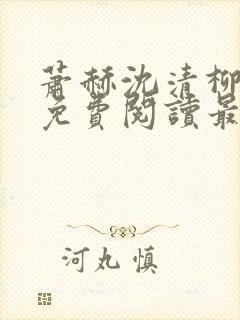 蕭赫沈清柳
免費閱讀最
河丸慎